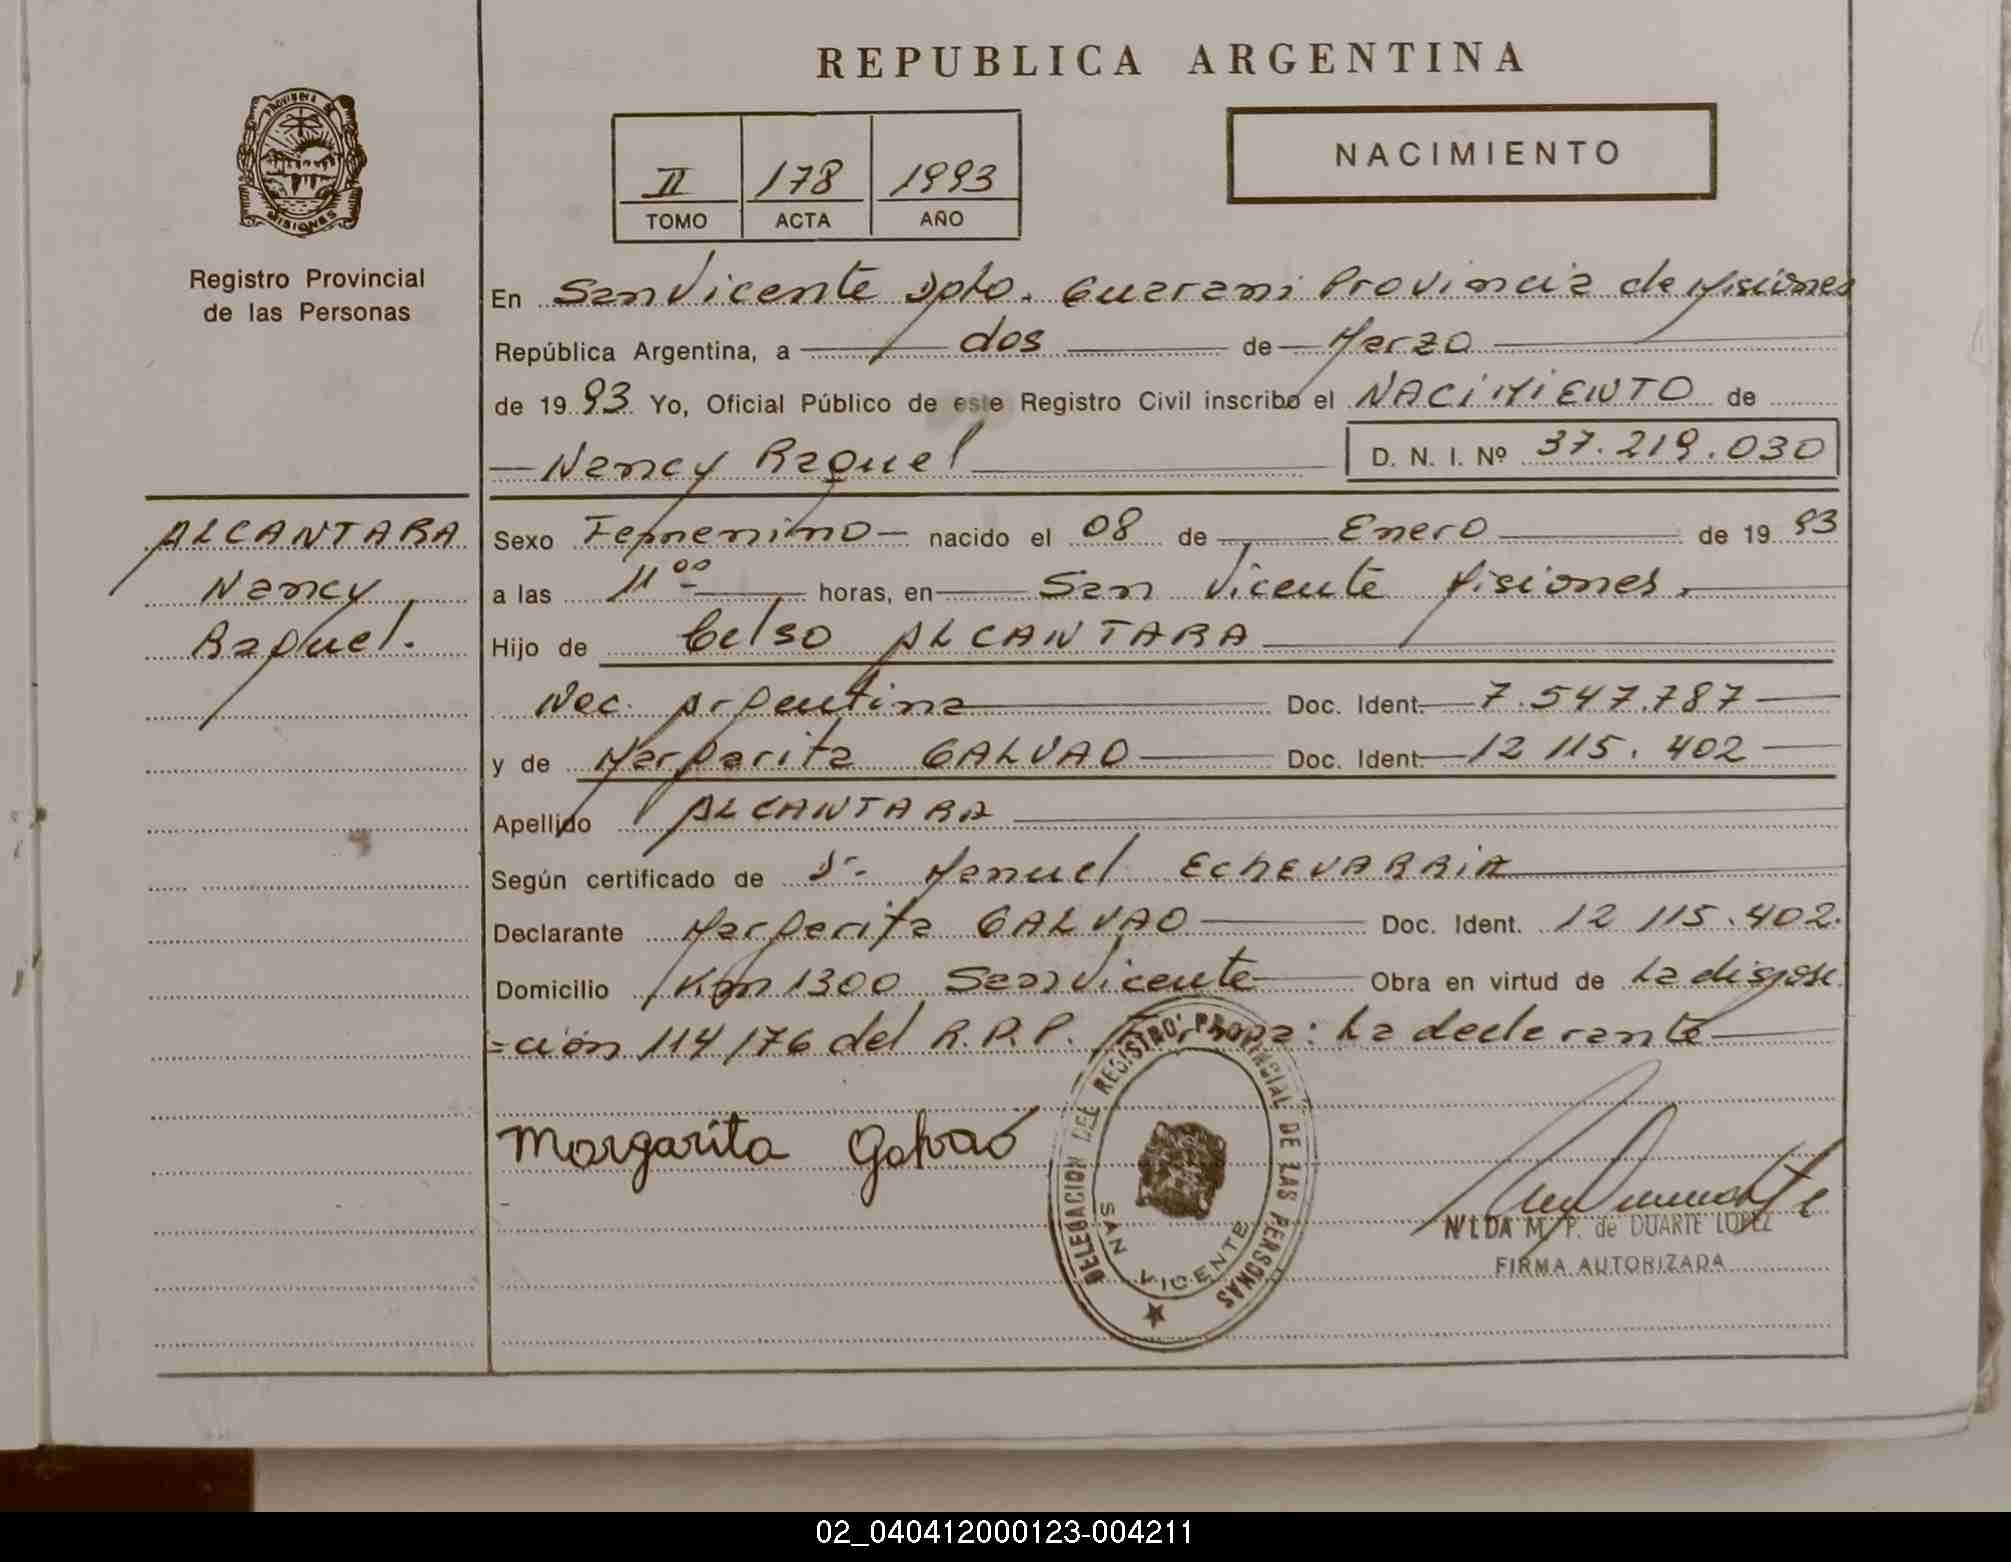 REPUBLICA ARGENTINA
PROVINCIA DE
MISIONES
II 178 1993
TOMO ACTA AÑO
NACIMIENTO
Registro Provincial
de las Personas
En San Vicente Dpto. Guarani Provincia de Misiones
República Argentina, a dos de Marzo
de 1993 Yo, Oficial Público de este Registro Civil inscribo el NACIMIENTO de
Nancy Raquel D. N. I. Nº 37.219.030
ALCANTARA
Nancy
Raquel.
Sexo Femenino nacido el 08 de Enero de 1993
a las 11 00 horas, en San Vicente Misiones.
Hijo de Celso ALCANTARA
Nac. Argentina Doc. Ident. 7.547.787
y de Margarita GALVAO Doc. Ident. 12 115.402
Apellido ALCANTARA
Según certificado de Dr. Manuel EchEVARRIA
Declarante Margarita GALVAO Doc. Ident. 12 115.402.
Domicilio Km 1300 San Vicente Obra en virtud de La disposi
=ción 114/76 del R.P.P. Firma: La declarante
Margarita Galvaó
DELEGACION DEL REGISTRO PROVINCIAL DE LAS PERSONAS
SAN VICENTE
NILDA M. P. de DUARTE LOPEZ
FIRMA AUTORIZADA
02_040412000123-004211